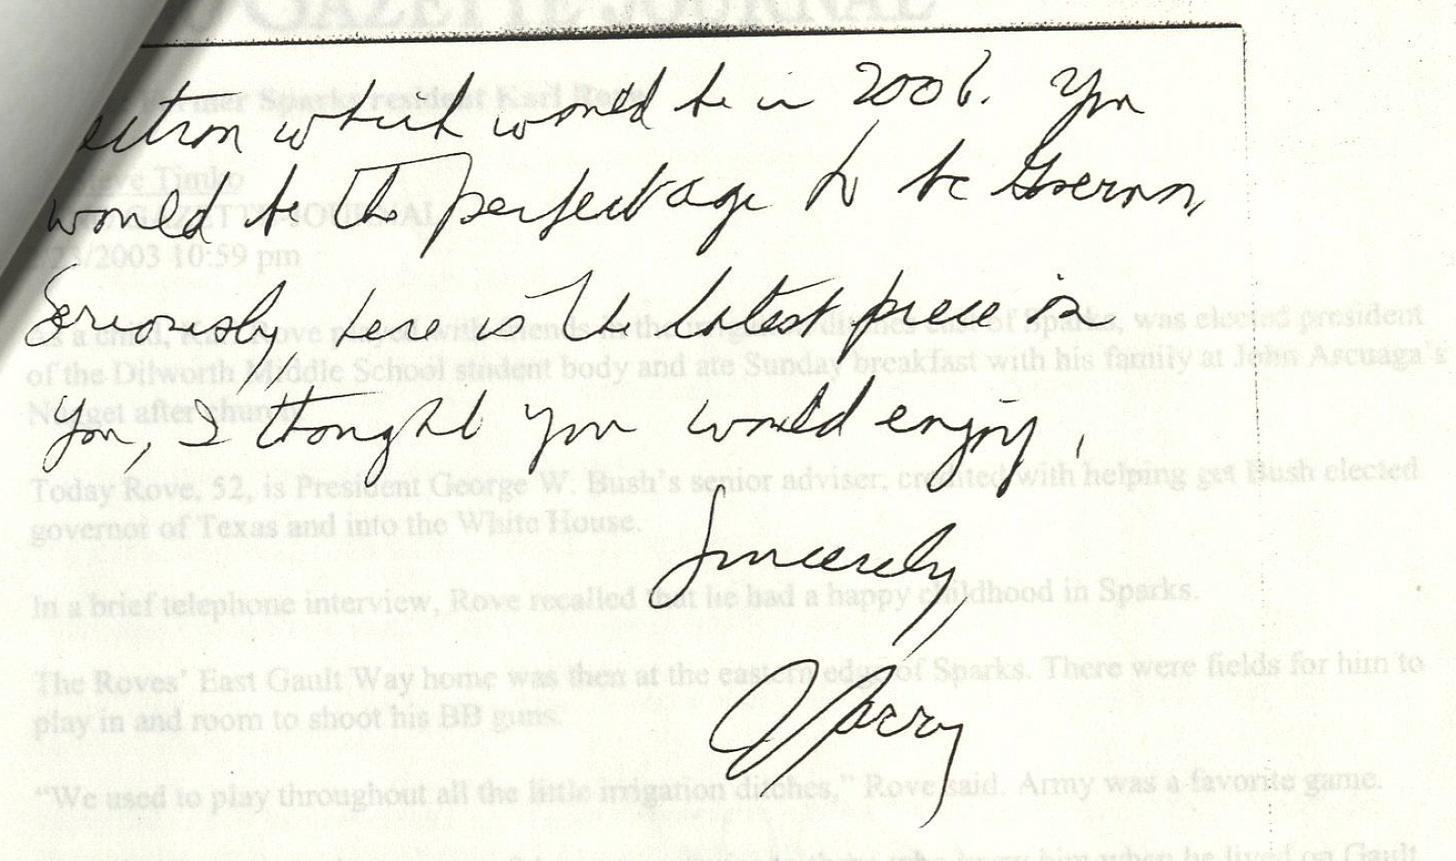 GAZETTE JOURNAL
ection which would be in 2006. You
Sparks resident Karl
Steve Timko
would be the perfect age to be Governor,
GAZETTE-JOURNAL
23/2003 10:59 pm
Seriously, here is the latest piece
As a child, Karl Rove played with friends in the irrigation ditches east of Sparks, was elected president
of the Dilworth Middle School student body and ate Sunday breakfast with his family at John Ascuaga's
Nugget after church.
You, I thought you would enjoy.
Today Rove, 52, is President George W. Bush's senior adviser, credited with helping get Bush elected
governor of Texas and into the White House.
Sincerely,
In a brief telephone interview, Rove recalled that he had a happy childhood in Sparks.
The Roves' East Gault Way home was then at the eastern edge of Sparks. There were fields for him to
play in and room to shoot his BB guns.
"We used to play throughout all the little irrigation ditches," Rove said. Army was a favorite game.
him when he lived on Gault